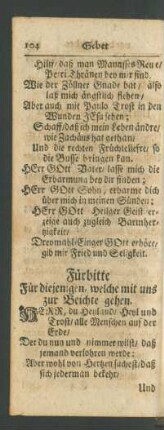 104 Gebet
Hilf/ daß man Manasses Reue/
Petri Thränen bey mir find.
Wie der Zöllner Gnade bat/ also
laß mich ängstlich flehen/
Aber auch mit Paulo Trost in den
Wunden JEsu sehen;
Schaff/ daß ich mein Leben ändre/
wie Zachäus hat gethan/
Und die rechten Früchte liefre/ so
die Busse bringen kan.
HErr GOtt Vater/ lasse mich die
Erbarmung bey dir finden;
HErr GOtt Sohn, erbarme dich
über mich in meinen Sünden;
HErr GOtt Heilger Geist er-
zeige auch zugleich Barmher-
tzigkeit;
Dreymahl-Einger GOtt erhöre/
gib mir Fried und Seligkeit.
Fürbitte
Für diejenigen, welche mit uns
zur Beichte gehen.
HERR, du Heyland, Heyl und
Trost/ alle Menschen auf der
Erde/
Der du nun und nimmer willst/ daß
jemand verlohren werde:
Aber wohl von Hertzen suchest/ daß
sich jederman bekehr/
Und